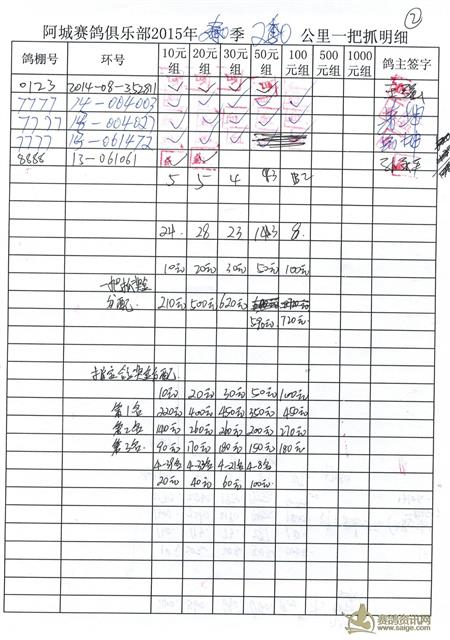 ②
阿城赛鸽俱乐部2015年 季 公里一把抓明细
鸽棚号 环号 10元组 20元组 30元组 50元组 100元组 500元组 1000元组 鸽主签字
0123 2014-08-352811 ✓ ✓ ✓ ✓
7777 14-004003 ✓ ✓ ✓ ✓ ✓
7777 13-004027 ✓ ✓ ✓ ✓ ✓
7777 13-061472 ✓ ✓ ✓
8888 13-061061
5 5 4
24 28 23 8
10元 20元 30元 50元 100元
一把抓奖金
分配 210元 500元 620元
590元 720元
指定鸽奖金分配
10元 20元 30元 50元 100元
第1名 220元 400元 450元 350元 450元
第2名 140元 260元 260元 200元 270元
第3名 90元 170元 180元 150元 180元
4-21名 4-8名
20元 40元 60元 100元
赛鸽资讯网
www.saige.com